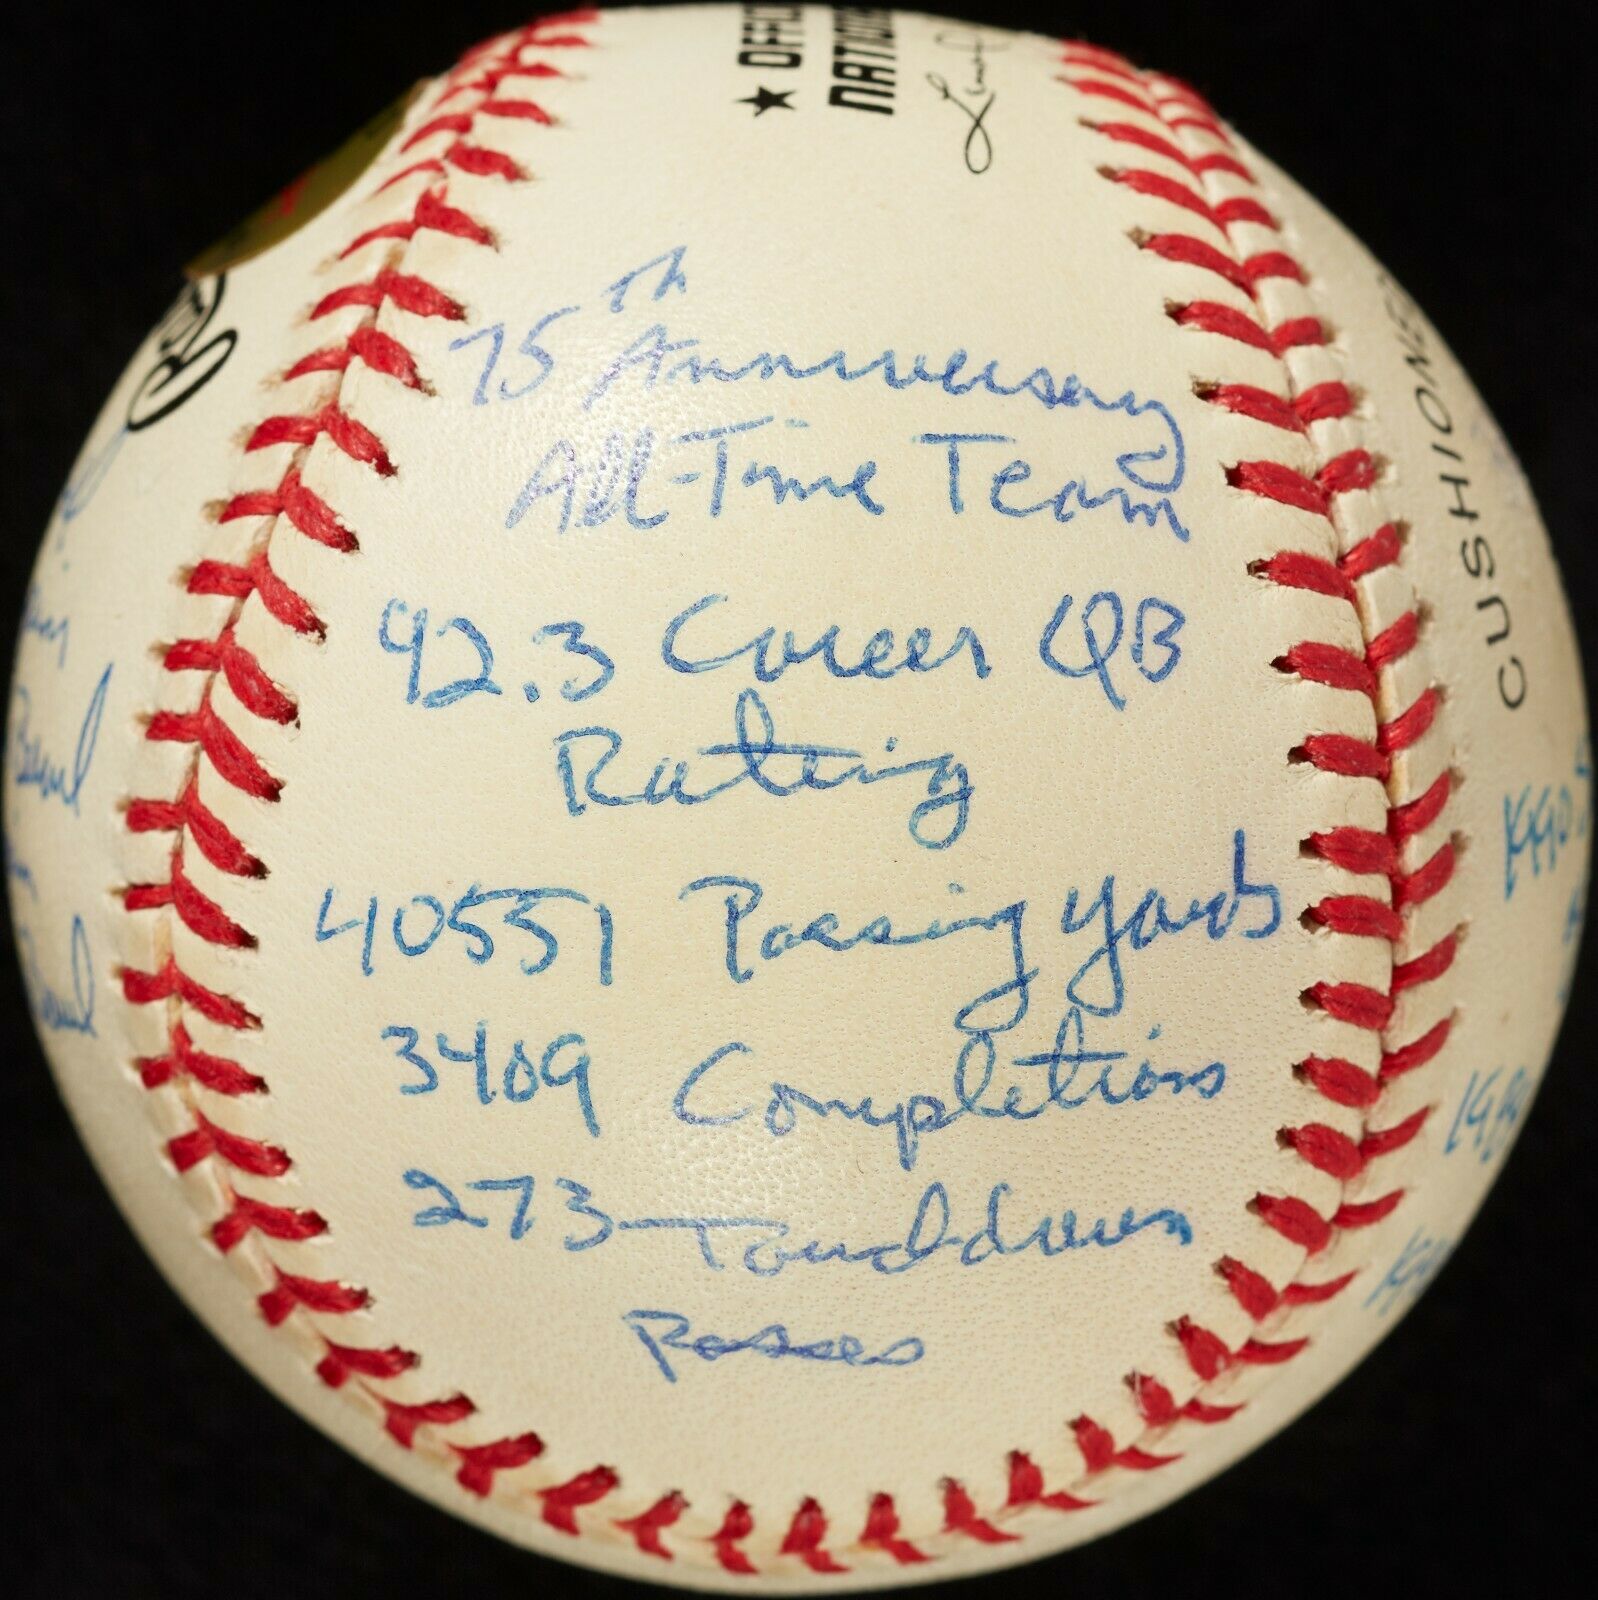 ★ OFFIC
NATION
75th Anniversary
All-Time Team
92.3 Career QB
Rating
40551 Passing Yards
3409 Completions
273 Touchdown
Passes
CUSHIONE
Bowl
Bowl